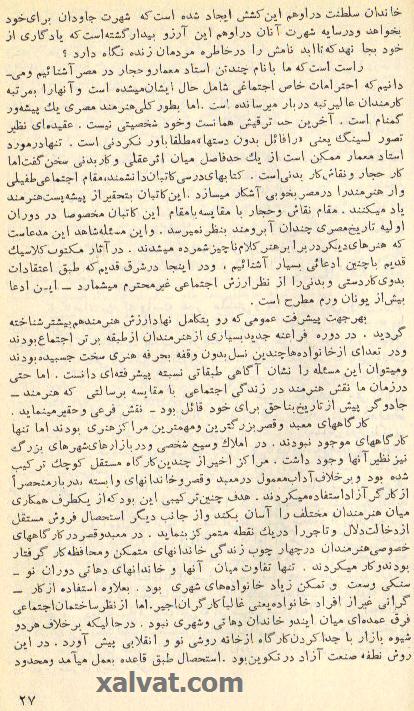 خاندان سلطنت در او هم این کشش ایجاد شده است که شهرت جاودان برای خود
بخواهد و در سایه شهرت آنان در او هم این آرزو بیدار گشته است که یادگاری از
خود بجا نهد که تا ابد نامش را در خاطره مردمان زنده نگاه دارد ؟
راست است که ما با نام چند تن استاد معمار و حجار در مصر آشنائیم و می‌-
دانیم که احترامات خاص اجتماعی شامل حال ایشان میشده است و آنها را بمرتبه
کارمندان عالیرتبه دربار میرسانده است . اما بطور کلی هنرمند مصری یك پیشه‌ور
گمنام است . آخرین حد ترقیش همانست وخود شخصیتی نیست . عقیده‌ای نظیر
تصور لسینگ یعنی «رافائل بدون دستها» مطلقا باور نکردنی است . تنها در مورد
استاد معمار ممکن است از یك حد فاصل میان اثر عقلی و کار بدنی سخن گفت اما
کار حجار و نقاش کار بدنی است . کتابهای درسی کاتبان دانشمند، مقام اجتماعی طفیلی
وار هنرمند را در مصر بخوبی آشکار میسازد. این کاتبان بتحقیر از پیشه پست هنرمند
یاد میکنند . مقام نقاش و حجار با مقایسه با مقام این کاتبان مخصوصا در دوران
اولیه تاریخ مصری چندان آبرومند بنظر نمیرسد . و این مسئله شاهد این مدعاست
که هنرهای دیگر در برابر هنر کلام ناچیز شمرده میشدند . در آثار مکتوب کلاسیك
قدیم با چنین ادعائی بسیار آشنائیم ، ودر اینجا در شرق قدیم که طبق اعتقادات
بدوی کار دستی و بدنی را از نظر ارزش اجتماعی غیر محترم میشمارد ـ این ادعا
بیش از یونان و رم مطرح است .
بهر جهت پیشرفت عمومی که رو بتکامل نهاد ارزش هنرمند هم بیشتر شناخته
گردید . در دوره فراعنه جدید بسیاری از هنرمندان از طبقه برتر اجتماع بودند
ودر تعدای از خانواده‌ها چندین نسل بدون وقفه بحرفه هنری سخت چسبیده بودند
و میتوان این مسئله را نشان آگاهی طبقاتی نسبته پیشرفته‌ای دانست . اما حتی
در زمان ما نقش هنرمند در زندگی اجتماعی با مقایسه برسالتی که هنرمند ـ
جادوگر پیش از تاریخ بناحق برای خود قائل بود ـ نقش فرعی و حقیر مینماید .
کارگاههای معبد و قصر بزرگترین و مهمترین مراکز هنری بودند اما تنها
کارگاههای موجود نبودند . در املاك وسیع شخصی و در بازارهای شهرهای بزرگ
نیز نظیر آنها وجود داشت . مراکز اخیر از چندین کارگاه مستقل کوچك ترکیب
شده بود و برخلاف آداب معمول در معبد و قصر و خاندانهای وابسته بدربار منحصراً
از کارگر آزاد استفاده میکردند . هدف چنین ترکیبی این بود که از یکطرف همکاری
میان هنرمندان مختلف را آسان بکند و از جانب دیگر استحصال فروش مستقل
از دخالت دلال و تاجر را در یك نقطه متمرکز بنماید . در معبد و قصر در کارگاههای
خصوصی هنرمندان در چهار چوب زندگی خاندانهای متمکن و محافظه‌کار گرفتار
بودند و کار میکردند . تنها تفاوت میان آنها و خاندانهای دهاتی دوران نو ـ
سنگی وسعت و تمکن زیاد خانواده‌های شهری بود . بعلاوه استفاده از کار ـ
گرانی غیر از افراد خانواده یعنی غالبا کارگران اجیر. اما از نظر ساختمان اجتماعی
فرق عمده‌ای میان ایندو خاندان دهاتی و شهری نبود . در حالیکه برخلاف هر دو
شیوه بازار با جدا کردن کارگاه از خانه روشی نو و انقلابی پیش آورد . در این
روش نطفه صنعت آزاد در تکوین بود . استحصال طبق قاعده بعمل میآمد و محدود
۲۷
xalvat.com